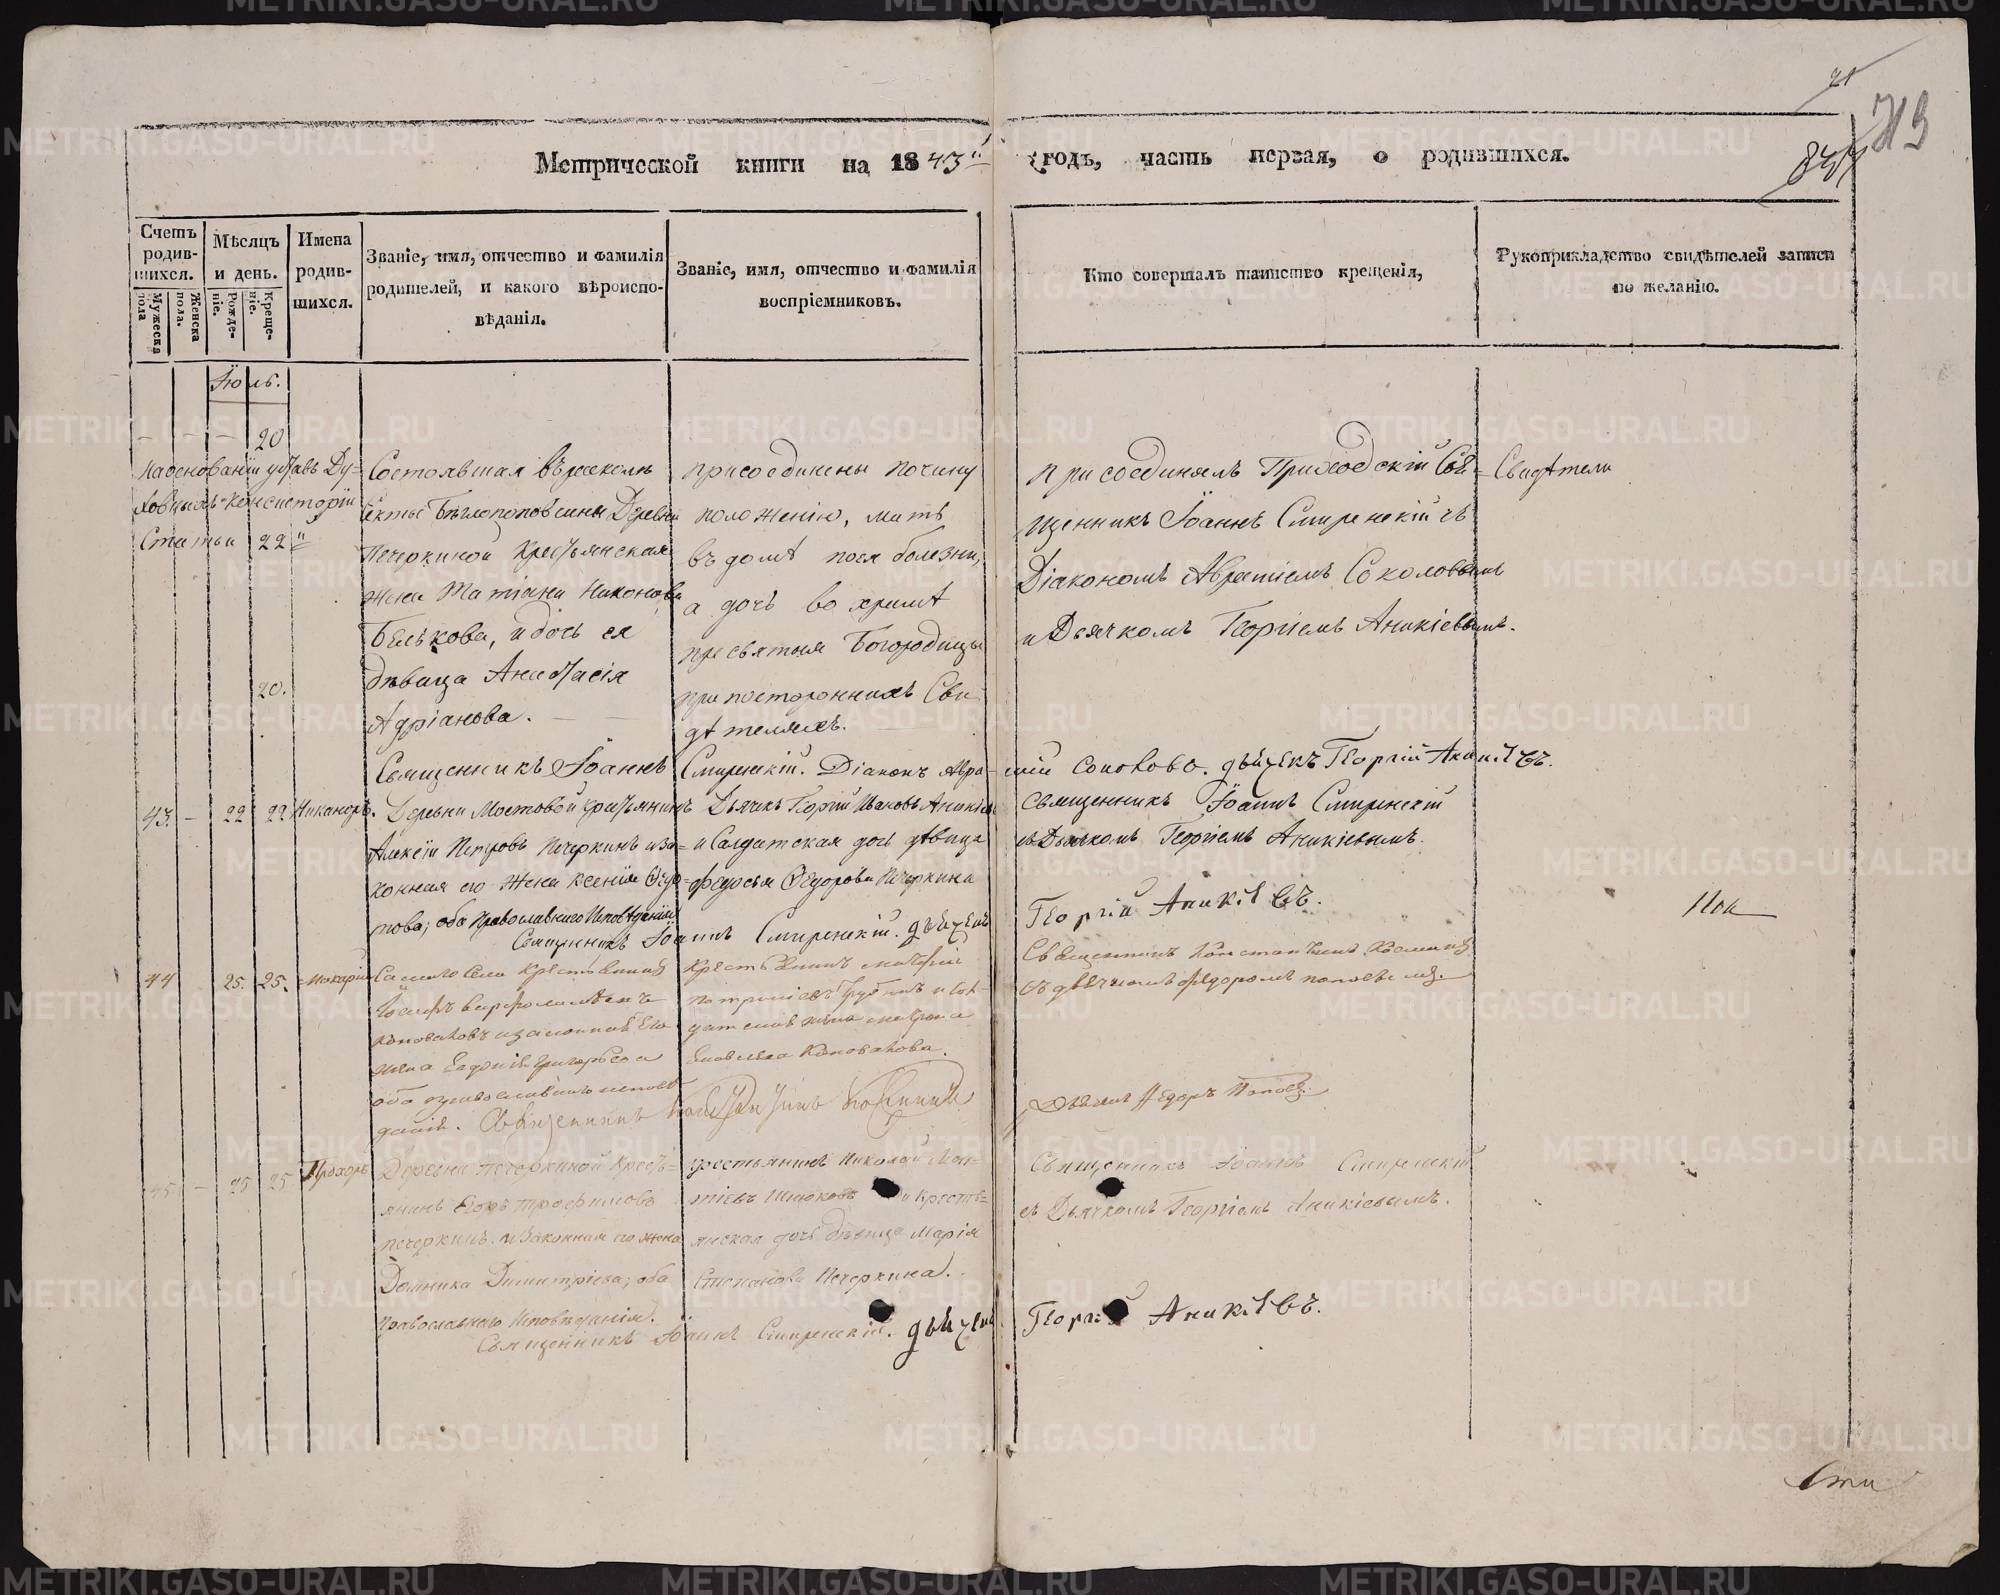 21
713
Метрической книги на 1843й годъ, часть первая, о родившихся.
Счетъ родив-
шихся.
Мужеска пола
Женска пола.
Мѣсяцъ
и день.
Рожде-
ніе.
Креще-
ніе.
Имена
родив-
шихся.
Званіе, имя, отчество и фамилія
родителей, и какого вѣроиспо-
вѣданія.
Званіе, имя, отчество и фамилія
воспріемниковъ.
Кто совершалъ таинство крещенія,
Рукоприкладство свидѣтелей записи
по желанію.
Іюль.
— — — 20
На основаніи устав. Ду-
ховныхъ Консисторій
Статьи 22й
20.
Состоявшая в расколѣ
секты Бѣглопоповсины Деревни
Печеркиной Крестьянская
жена Татіана Никонова
Белькова, и дочь ея
дѣвица Анастасія
Адріанова. — —
присоединены по чину
положенію, мать
въ домѣ по ея болезни,
а дочь во храмѣ
пресвятыя Богородицы
при постороннихъ Сви-
дѣтеляхъ.
присоединялъ Приходскій Свя-
щенникъ Іоаннъ Смиренскій съ
Діакономъ Авраміемъ Соколовымъ
и Дьячкомъ Георгіемъ Аникіевымъ.
Свидѣтели
Священникъ Іоаннъ Смиренскій. Діаконъ Авра-
мій Соколовъ. дьячекъ Георгій Аникіевъ.
43. — 22 22 Никаноръ.
Деревни Мостовой крестьянинъ
Алексій Петровъ Печеркинъ и за-
конная его жена Ксенія Федо-
това; оба Православнаго Исповѣданія
Дьячекъ Георгій Ивановъ Аникіевъ
и Салдатская дочь дѣвица
Федосья Ѳедорова Печеркина
Священникъ Іоаннъ Смиренскій
съ Дьячкомъ Георгіемъ Аникіевымъ.
Священникъ Іоаннъ Смиренскій. дьячекъ
Георгій Аникіевъ.
Пон
44 25. 25. Макарій
Самаго Села Крестьянинъ
Іосифъ
Коноваловъ и законная его
жена Евдокія Григорьева
оба православнаго испове-
данія.
Крестьянинъ
и Сол-
датская жена Матрона
Яковлева Коновалова.
Священникъ Константинъ
съ дьячкомъ Федоромъ Поповымъ.
Священникъ Константинъ
Дьячекъ Федоръ Поповъ.
45 — 25 25 Прохоръ
Деревни Печеркиной Кресть-
янинъ Егоръ Трофимовъ
Печеркинъ. и Законная его жена
Домника Димитріева; оба
Православнаго Исповѣданія.
крестьянинъ Николай Мат-
ѳіевъ и Кресть-
янская дочь дѣвица Марія
Степанова Печеркина.
Священникъ Іоаннъ Смиренскій
съ Дьячкомъ Георгіемъ Аникіевымъ.
Священникъ Іоаннъ Смиренскій. дьячекъ
Георгій Аникіевъ.
METRIKI.GASO-URAL.RU